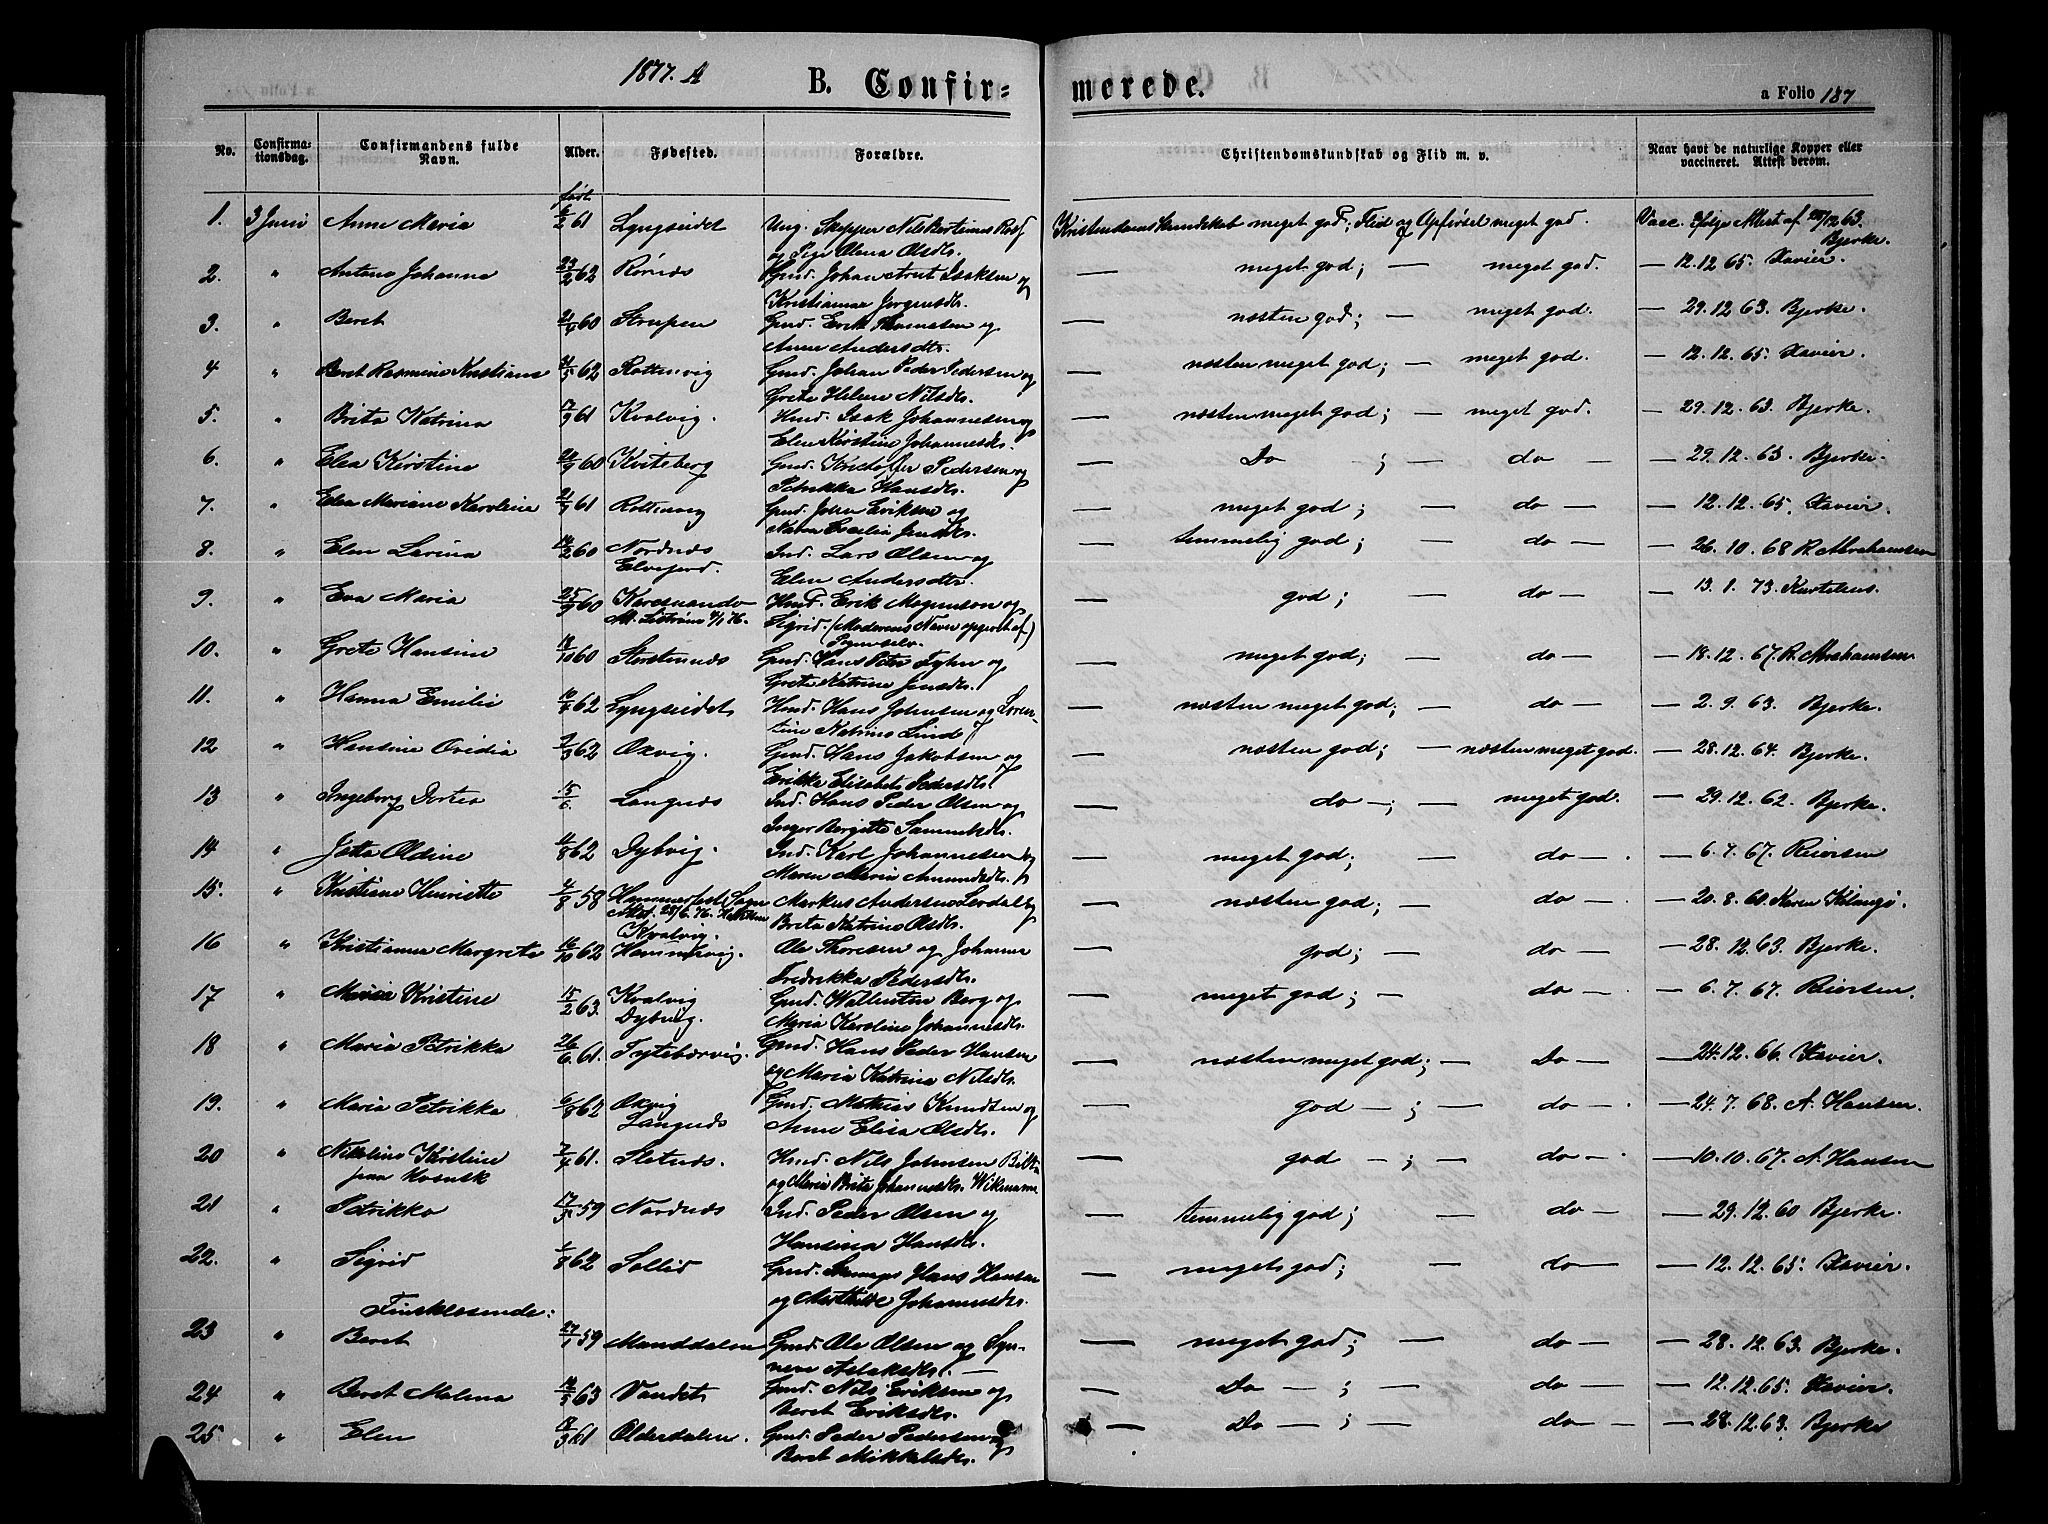 1877. A B. Confirmerede. a Folio 187
No. Confirmationsdag. Confirmandens fulde Navn. Alder. Fødested. Forældre. Christendomskundskab og Flid m. v. Naar havt de naturlige Kopper eller vaccineret. Attest derom.
født
1. 3 Juni Anne Maria 6/2 61 Lyngseidet Ung. Skipper Nils Bertinus og Pige Olena Olsdtr. Kristendomskundskab meget god; Flid og Opførsel meget god. Vacc. ifølge Attest af 28/12 63. Bjerke.
2. " Antone Johanna 23/2 62 Rørnæs Gmd. Johan Arnt Isaksen og Kristianna Jørgensdtr. — meget god; — meget god. — 12.12 65. Xavier.
3. " Beret 21/4 60 Strupen Gmd. Erik Thomesen og Anne Andersdtr. — næsten god; — meget god. — 29.12 63. Bjerke.
4 " Beret Rasmine Kristiane /5 62 Rottenvig Gmd. Johan Peder Pedersen og Grete Helene Nilsdtr. — næsten meget god; — meget god. — 12.12.65. Xavier.
5. " Brita Katrina 17/9 61 Kvalvig. Hmd. Isak Johannesen og Elen Kirstine Johannesdtr. — næsten meget god; — meget god. — 29.12.63. Bjerke.
6. " Elea Kirstine 24/9 60 Kviteberg Gmd. Kristoffer Pedersen og Petrikka Hansdtr. — Do ; — do — — 29.12.63. Bjerke.
7. " Elea Mariane Karoline 21/7 61 Rottenvig Gmd. John Eriksen og Maren Cecilia Jensdtr. — meget god; — do — — 12.12.65. Xavier.
8. " Elen Lavina 14/2 60 Nordnæs Elvejord. Ind. Lars Olsen og Elen Andersdtr. — temmelig god; — do — — 26.10.68 R. Abrahamsen
9. " Eva Maria 25/9 60 Karesuando Hmd. Erik Magnuson og Sigrid. (Moderens Navn opgivet af Pigen selv) — god; — do — — 13.1.73.
10. " Grete Hansine 18/10 60 Storstennæs Gmd. Hans Peter Fyhn og Grete Katrine Jensdtr. — meget god; — do — — 18.12.67. R. Abrahamsen
11. " Hanna Emilie 10/ 62 Lyngseidet Hmd. Hans Johnsen og Lorentine Katrine Lind — næsten meget god; — do — — 2.9.63. Bjerke.
12 " Hansine Ovidia 7/3 62 Oxvig. Gmd. Hans Jakobsen og Erikke Elisabet Pedersdtr. næsten god; — næsten meget god. — 28.12.64. Bjerke.
13 " Ingeborg Dortea 15/6 Langnæs Ind. Hans Peder Olsen og Inger Bergitte Samuelsdtr. — do —; — meget god. — 29.12.62. Bjerke.
14 " Jetta Oldine /8 62 Dybvig. Ind. Karl Johannesen og Maren Maria Amundsdtr. — meget god; — do — . — 6.7.67. Reiersen
15. " Kristine Henriette 4/8 58 Hammerfest Sogn Att. 28/6.76. Kvalvig. Markus Andersen Lerdal og Brita Katrine Olsdtr. — næsten god; — do — . — 20.8.60. Karen Kilangi.
16 " Kristianna Margrete 16/10 62 Hammervig. Ole Thoresen og Johanna Fredrikka Pedersdtr. — god; — do — . — 28.12.63. Bjerke.
17 " Maria Kristine 15/2 63. Kvalvig Dybvig. Gmd. Wallentin Berg og Maria Karoline Johannesdtr. — meget god; — do — . — 6.7.67. Reiersen.
18 " Maria Petrikka 26/6 61. Tytebærvig. Gmd. Hans Peder Hansen og Maria Katrina Nilsdtr. — næsten meget god; — Do — — 24.12.66. Xavier.
19. " Maria Petrikka 6/8 62 Oxvig Langnæs Gmd. Mathias Knudsen og Anne Elisa Olsdtr. — god — ; — do — . — 24.7.68. A. Hansen.
20 " Nikoline Kirstine 7/4 61. Sletnæs. Kmd. Nils Johnsen og Maria Brita Johannesdtr. Wikmann — god — ; — do — . — 10.10.67. A. Hansen
21 " Petrikka 17/5 59 Nordnæs Ind. Peder Olsen og Hansina Hansdtr. — temmelig god; — do — — 29.12.60 Bjerke.
22. " Sigrid /8 62 Sollid Gmd. Hans Hansen og Mathilde Johannesdtr. — meget god; — do — — 12.12.65. Xavier.
Finsklæsende:
23 " Beret 27/1 59 Manddalen Gmd. Ole Olsen og Synneve Aslaksdtr. — — meget god; — do — — 28.12.63. Bjerke.
24 " Beret Malena 12/5 63 Vandet Gmd. Nils Eriksen og Beret Eriksdtr. — Do — ; — do — — 12.12.65. Xavier.
25 " Elen 18/3 61 Olderdalen. Gmd. Peder Pedersen og Beret Mikkelsdtr. — Do — ; — do — — 28.12.63. Bjerke